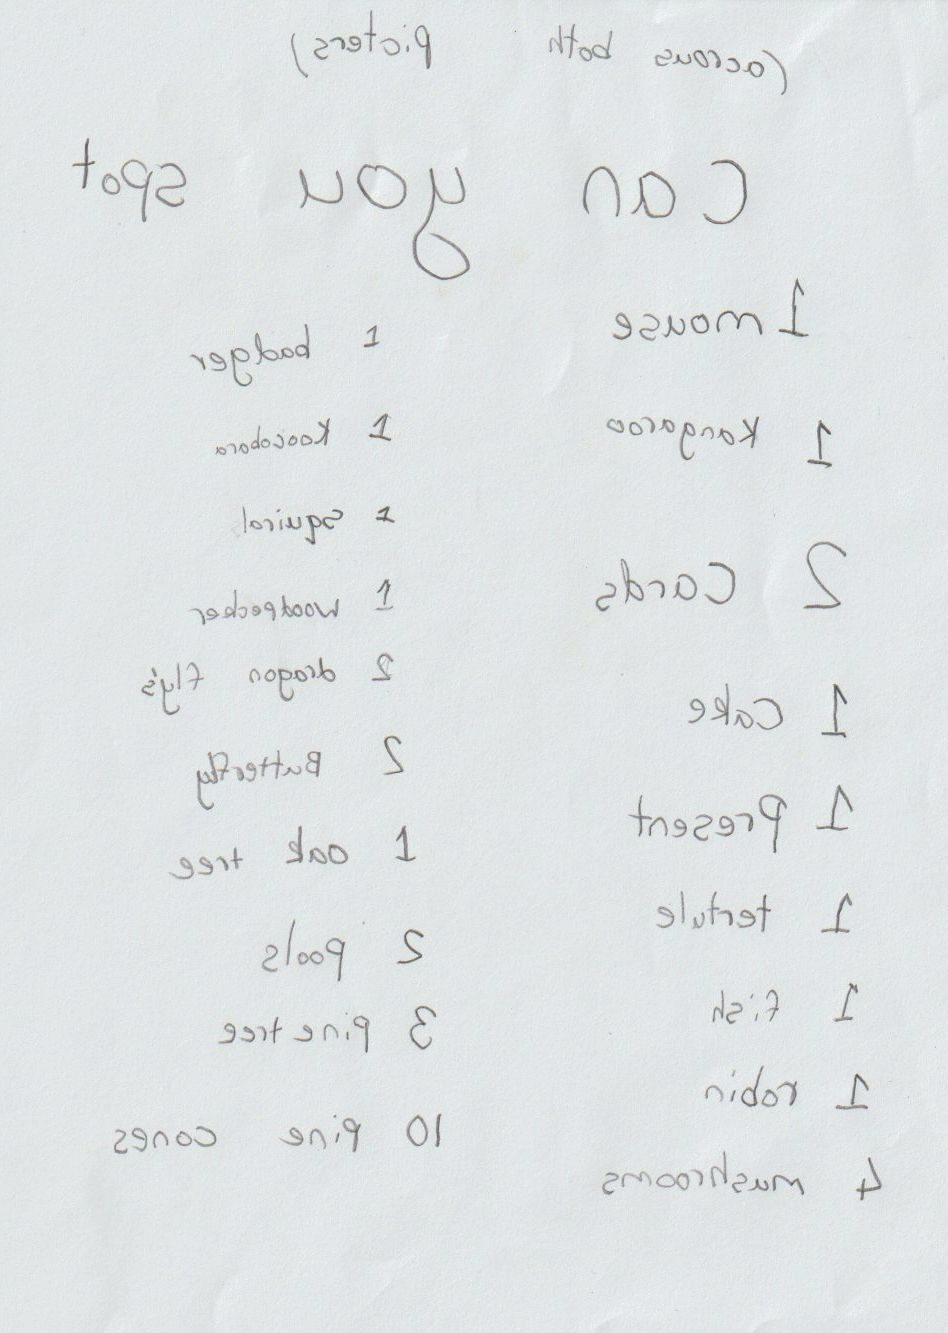 (acrous both picters)
Can you spot
1 mouse
1 kangaroo
2 Cards
1 Cake
1 present
1 tertule
1 fish
1 robin
4 mushrooms
1 badger
1 Koocobora
1 squiral
1 woodpecker
2 dragon fly's
2 Butterfly
1 oak tree
2 pools
3 pine tree
10 pine cones